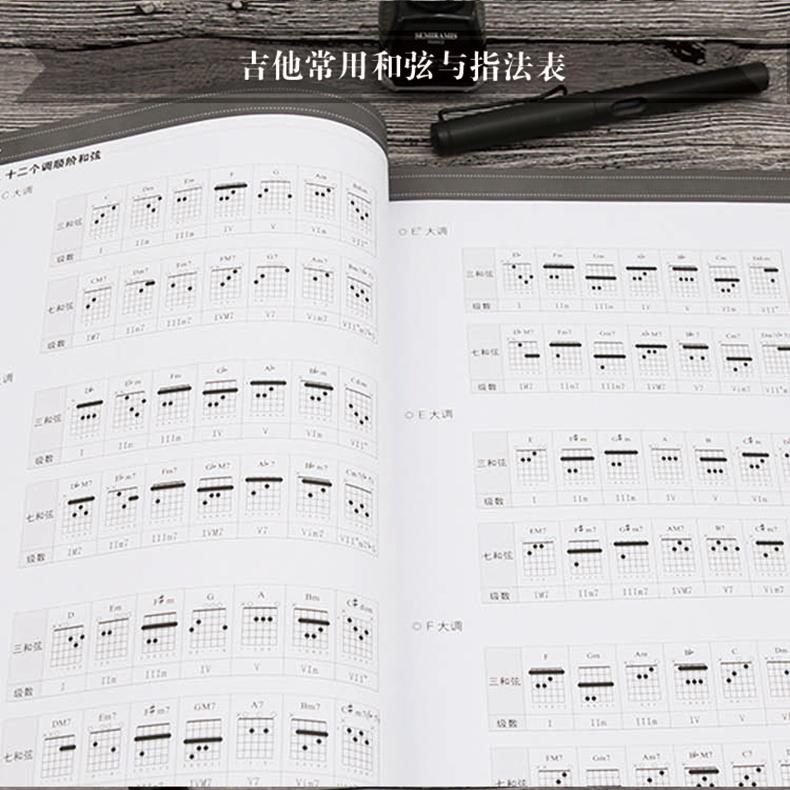 SEMIRAMIS
吉他常用和弦与指法表
十二个调顺阶和弦
C大调
C Dm Em F G Am Bdim
三和弦
级数 I IIm IIIm IV V VIm VII°
CM7 Dm7 Em7 FM7 G7 Am7
七和弦
级数 IM7 IIm7 IIIm7 IVM7 V7 VIm7
调
D♭ E♭m Fm G♭ A♭ B♭m Cdim
三和弦
级数 I IIm IIIm IV V VIm VII°
D♭M7 E♭m7 Fm7 G♭M7 A♭7 B♭m7
七和弦
级数 IM7 IIm7 IIIm7 IVM7 V7 VIm7
D Em F#m G A Bm C#dim
三和弦
级数 I IIm IIIm IV V VIm VII°
DM7 Em7 F#m7 GM7 A7 Bm7
七和弦
级数 IIm7 IIIm7 IVM7 V7 VIm7
E♭大调
E♭ Fm Gm A♭ B♭ Cm Ddim
三和弦
级数 I IIm IIIm IV V VIm VII°
E♭M7 Fm7 Gm7 A♭M7 B♭7 Cm7
七和弦
级数 IM7 IIm7 IIIm7 IVM7 V7 VIm7
E大调
E F#m G#m A B C#m
三和弦
级数 I IIm IIIm IV V VIm
EM7 F#m7 G#m7 AM7 B7 C#m7
七和弦
级数 IM7 IIm7 IIIm7 IVM7 V7 VIm7
F大调
F Gm Am B♭ C Dm
三和弦
级数 I IIm IIIm IV V VIm
FM7 Gm7 Am7 B♭M7 C7 Dm7
七和弦